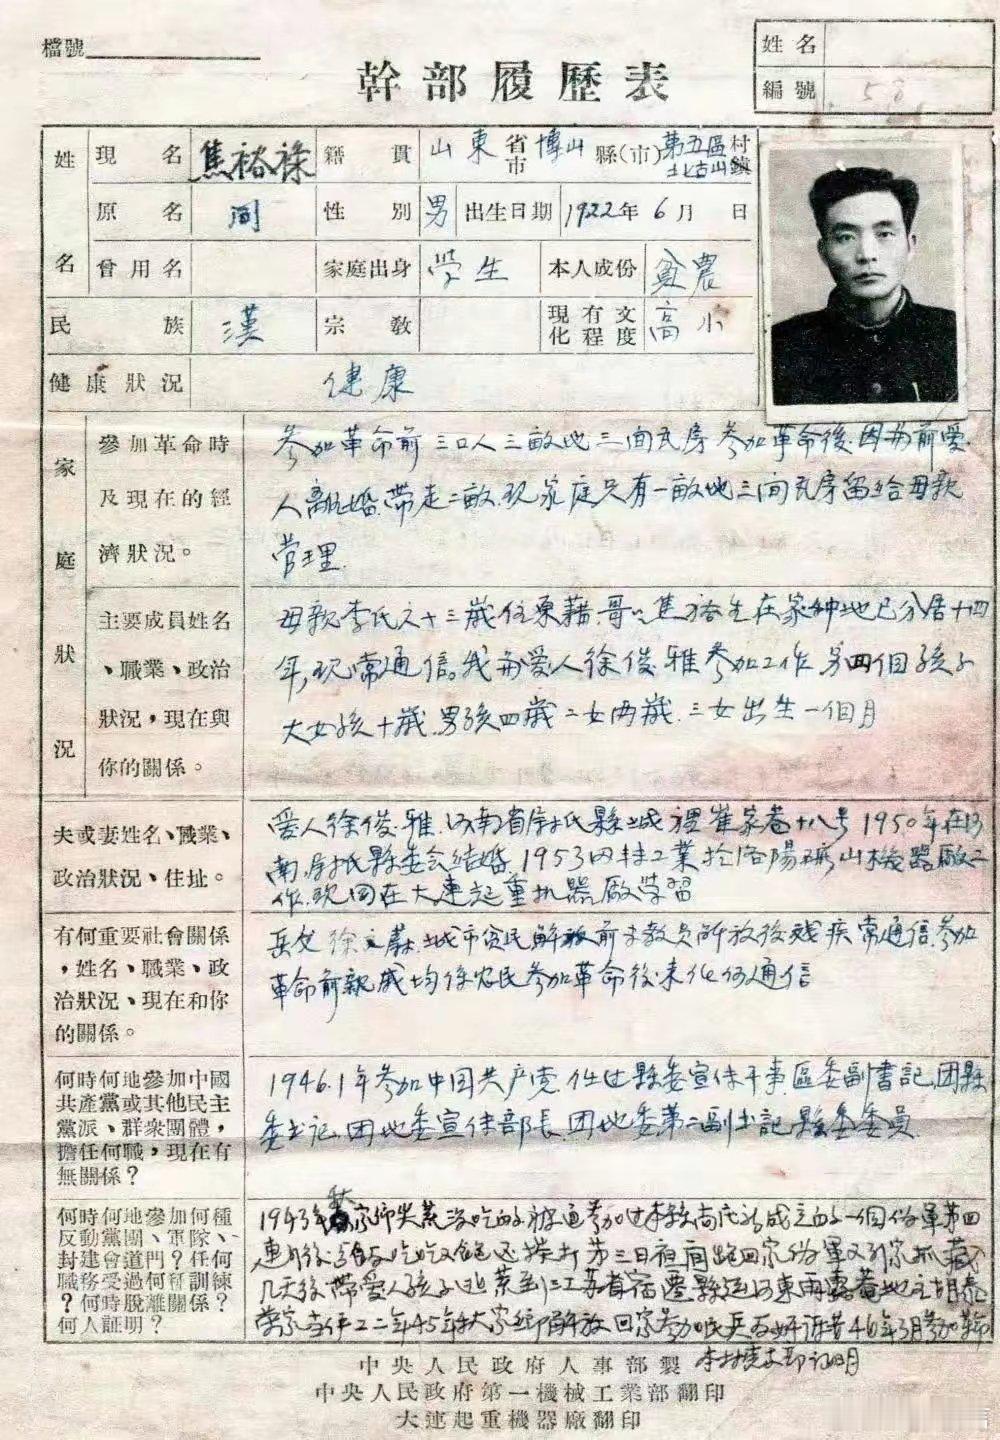 檔號
姓名
編號 58
幹部履歷表
姓名 現名 焦裕祿 籍貫 山東省市 博山縣(市) 第五區北古山村鎮
原名 同 性別 男 出生日期 1922年6月 日
曾用名 家庭出身 學生 本人成份 貧農
民族 漢 宗教 現有文化程度 高小
健康狀況 健康
家庭狀況
參加革命時
及現在的經
濟狀況。
参加革命前三口人三畝地三间瓦房参加革命後因为前爱
人離婚帶走二畝.现家庭只有一畝地三间瓦房留给母親
管理.
主要成員姓名
、職業、政治
狀況，現在與
你的關係。
母親李氏六十三歲住原藉.哥哥焦裕生在家种地已分居十四
年,现常通信。我与爱人徐俊雅参加工作另四個孩子
大女孩十歲.男孩四歲二女两歲.三女出生一個月
夫或妻姓名、職業、
政治狀況、住址。
爱人徐俊雅.河南省尉氏縣城裡崔家巷十八号1950年在河
南尉氏縣委会结婚1953因转工業於洛陽礦山機器廠工
作.现同在大連起重机器廠学習
有何重要社會關係
，姓名、職業、政
治狀況、現在和你
的關係。
岳父徐文蔚.城市贫民解放前未教員解放後残疾常通信.参加
革命前親戚均係农民参加革命後未化何通信
何時何地參加中國
共產黨或其他民主
黨派、群衆團體，
擔任何職，現在有
無關係？
1946.1年参加中国共产党任过縣委宣传干事.區委副書記.团縣
委书记.团地委宣传部長.团地委第二副书記.縣委委員.
何時何地參加何種
反動黨團、軍隊、
封建會道門？任何
職務受過何種訓練
？何時脫離關係？
何人証明？
1943年秋家 災荒没吃的 被 参加过本縣 成立的一個份軍第四
連 後 吃 又 飽还挨打第三日夜间跑回家份軍又到家抓藏
几天後帶爱人孩子逃荒到江苏省宿遷縣运河東 地主胡
家 工二年45年秋家鄉解放回家参加民兵 46年3月参加革命
李 文郎证明
中央人民政府人事部製
中央人民政府第一機械工業部翻印
大連起重機器廠翻印